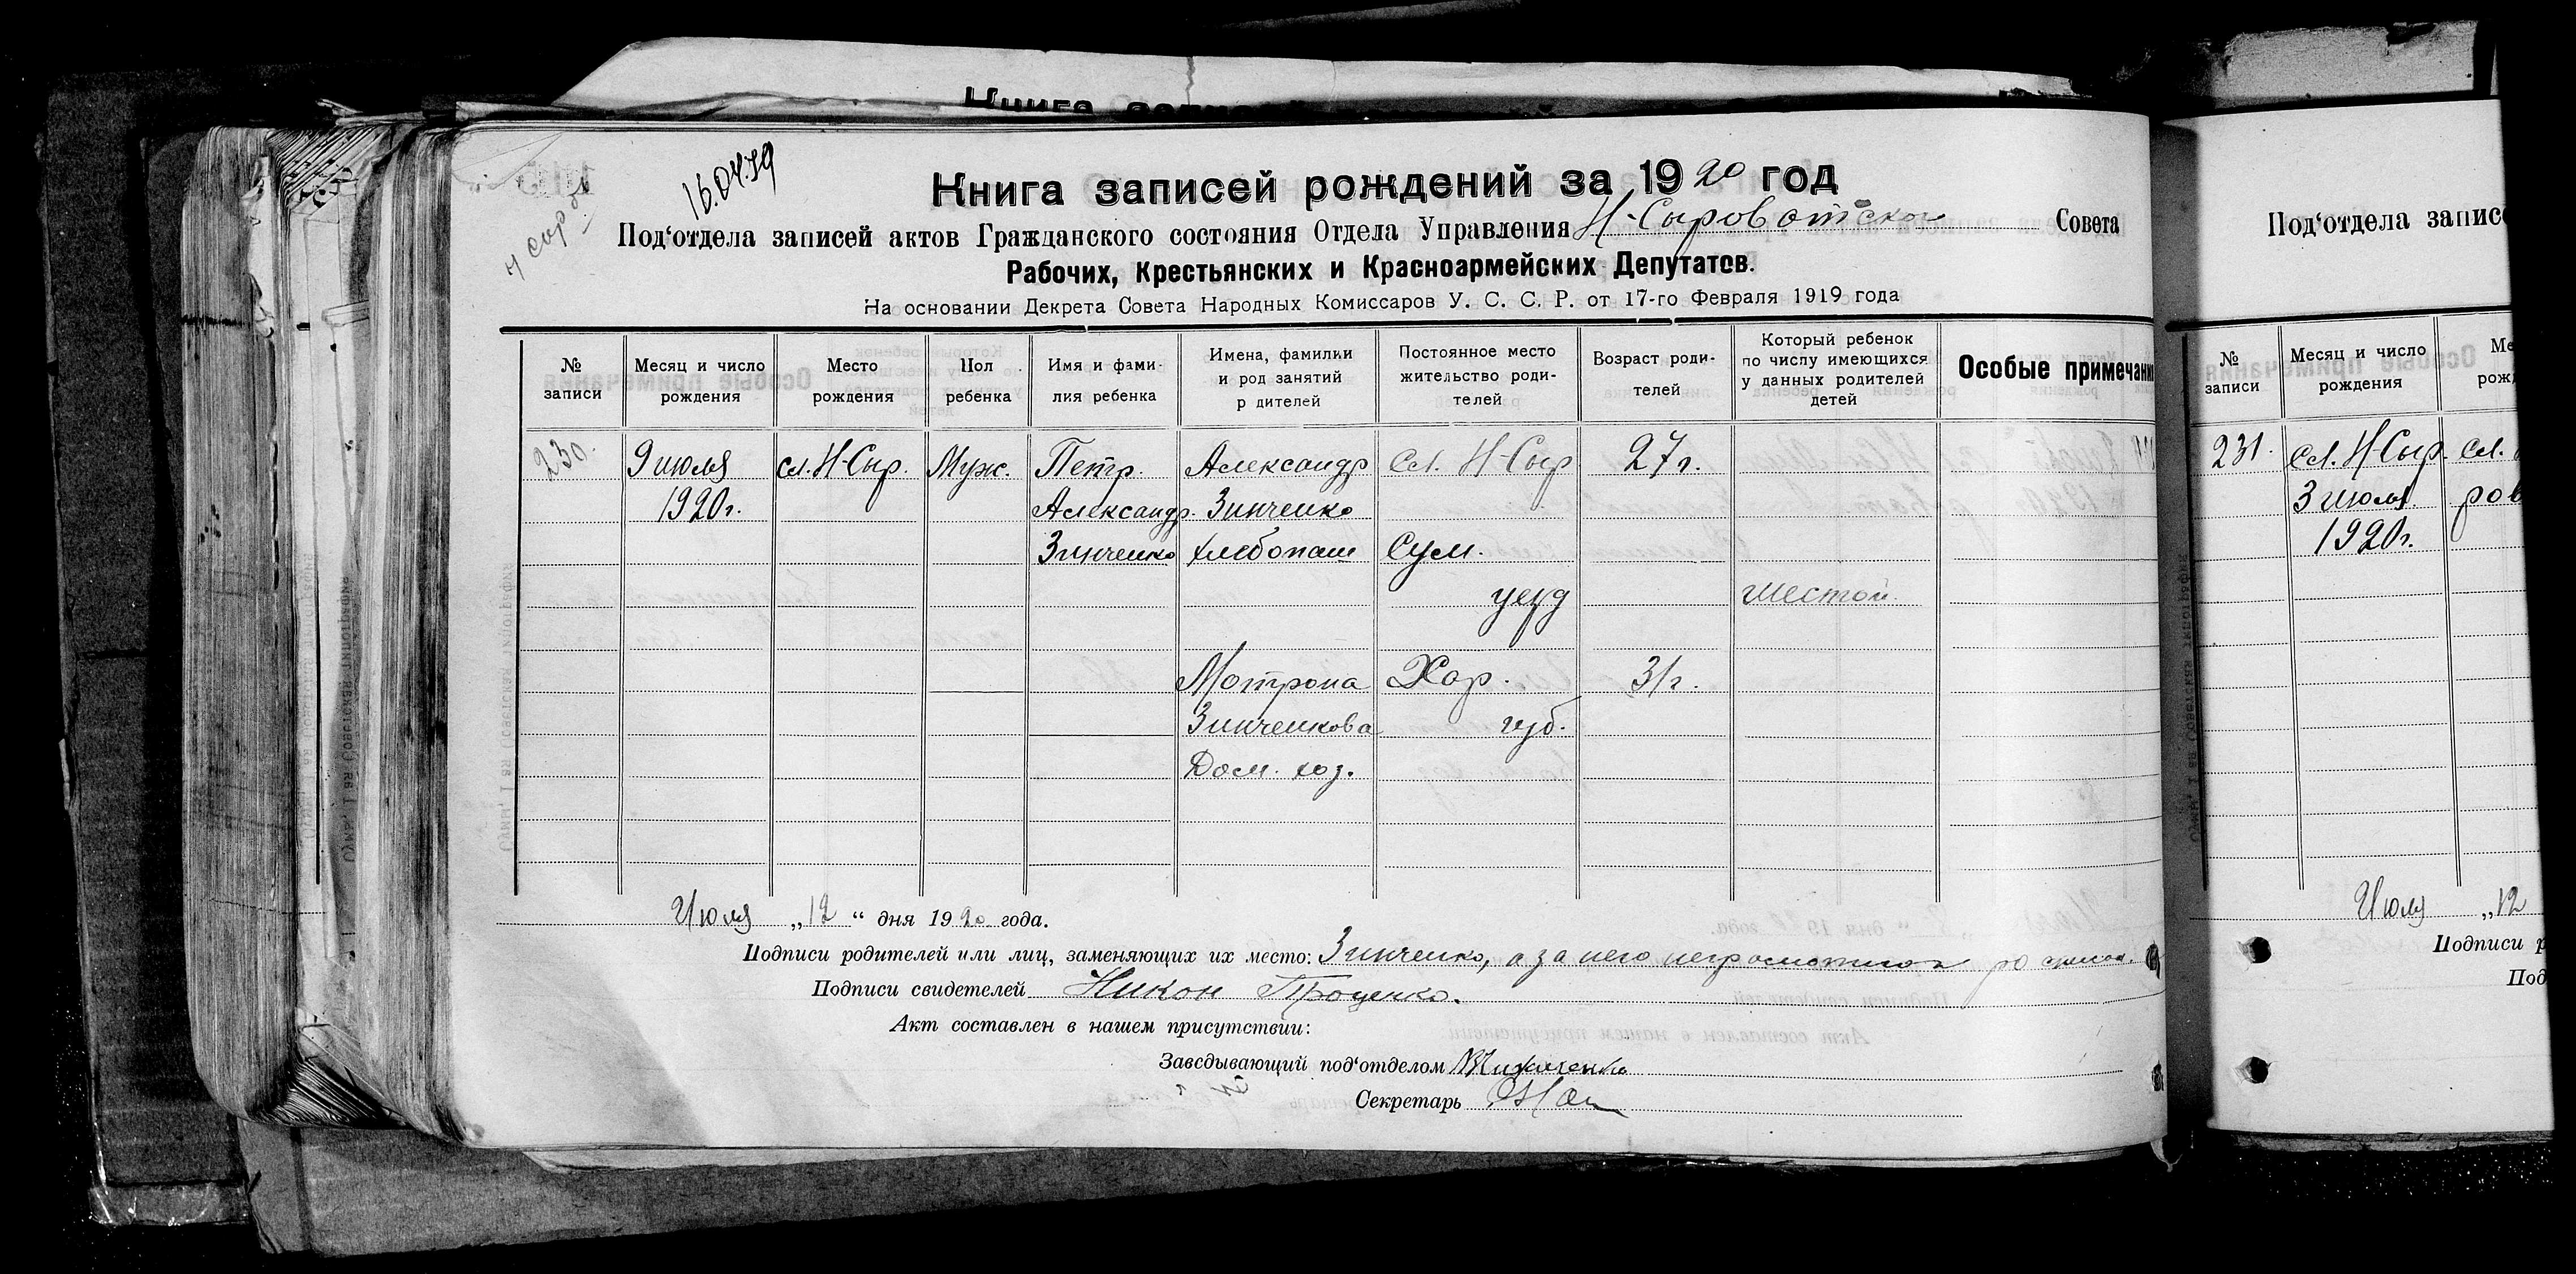 Книга записей
16.04.79
н сыров
Книга записей рождений за 1920 год
Под‘отдела записей актов Гражданского состояния Отдела Управления Н-Сыроватская Совета
Рабочих, Крестьянских и Красноармейских Депутатов.
На основании Декрета Совета Народных Комиссаров У. С. С. Р. от 17-го Февраля 1919 года
№ записи
Месяц и число рождения
Место рождения
Пол ребенка
Имя и фами- лия ребенка
Имена, фамилии и род занятий р дителей
Постоянное место жительство роди- телей
Возраст роди- телей
Который ребенок по числу имеющихся у данных родителей детей
Особые примечани
230. 9 июля сл. Н-Сыр. Муж. Петр. Александр сл. Н-Сыр 27 г.
1920 г. Александр. Зинченко
Зинченко хлебопаш Сум.
уезд шестой.
Мотрона Хар. 31 г.
Зинченкова губ.
Дом. хоз.
Июля „12“ дня 1920 года.
Подписи родителей или лиц, заменяющих их место: Зинченко, а за него неграмотного
Подписи свидетелей Никон Проценко.
Акт составлен в нашем присутствии:
Заведывающий под‘отделом
Секретарь
Под‘отдела записе
№ записи
Месяц и число рождения
Ме рожд
231. сл. Н-Сыр. сл.
3 июля ров
1920 г.
Июля „12
Подписи р
Под